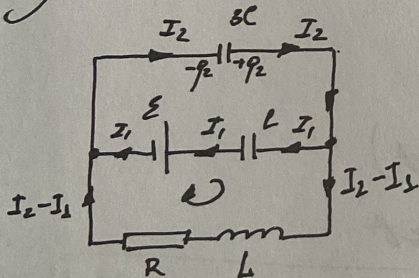 I₂ 3C I₂
-q₂ +q₂
ℰ C
I₁ I₁ I₁
I₂-I₁ I₂-I₁
R L